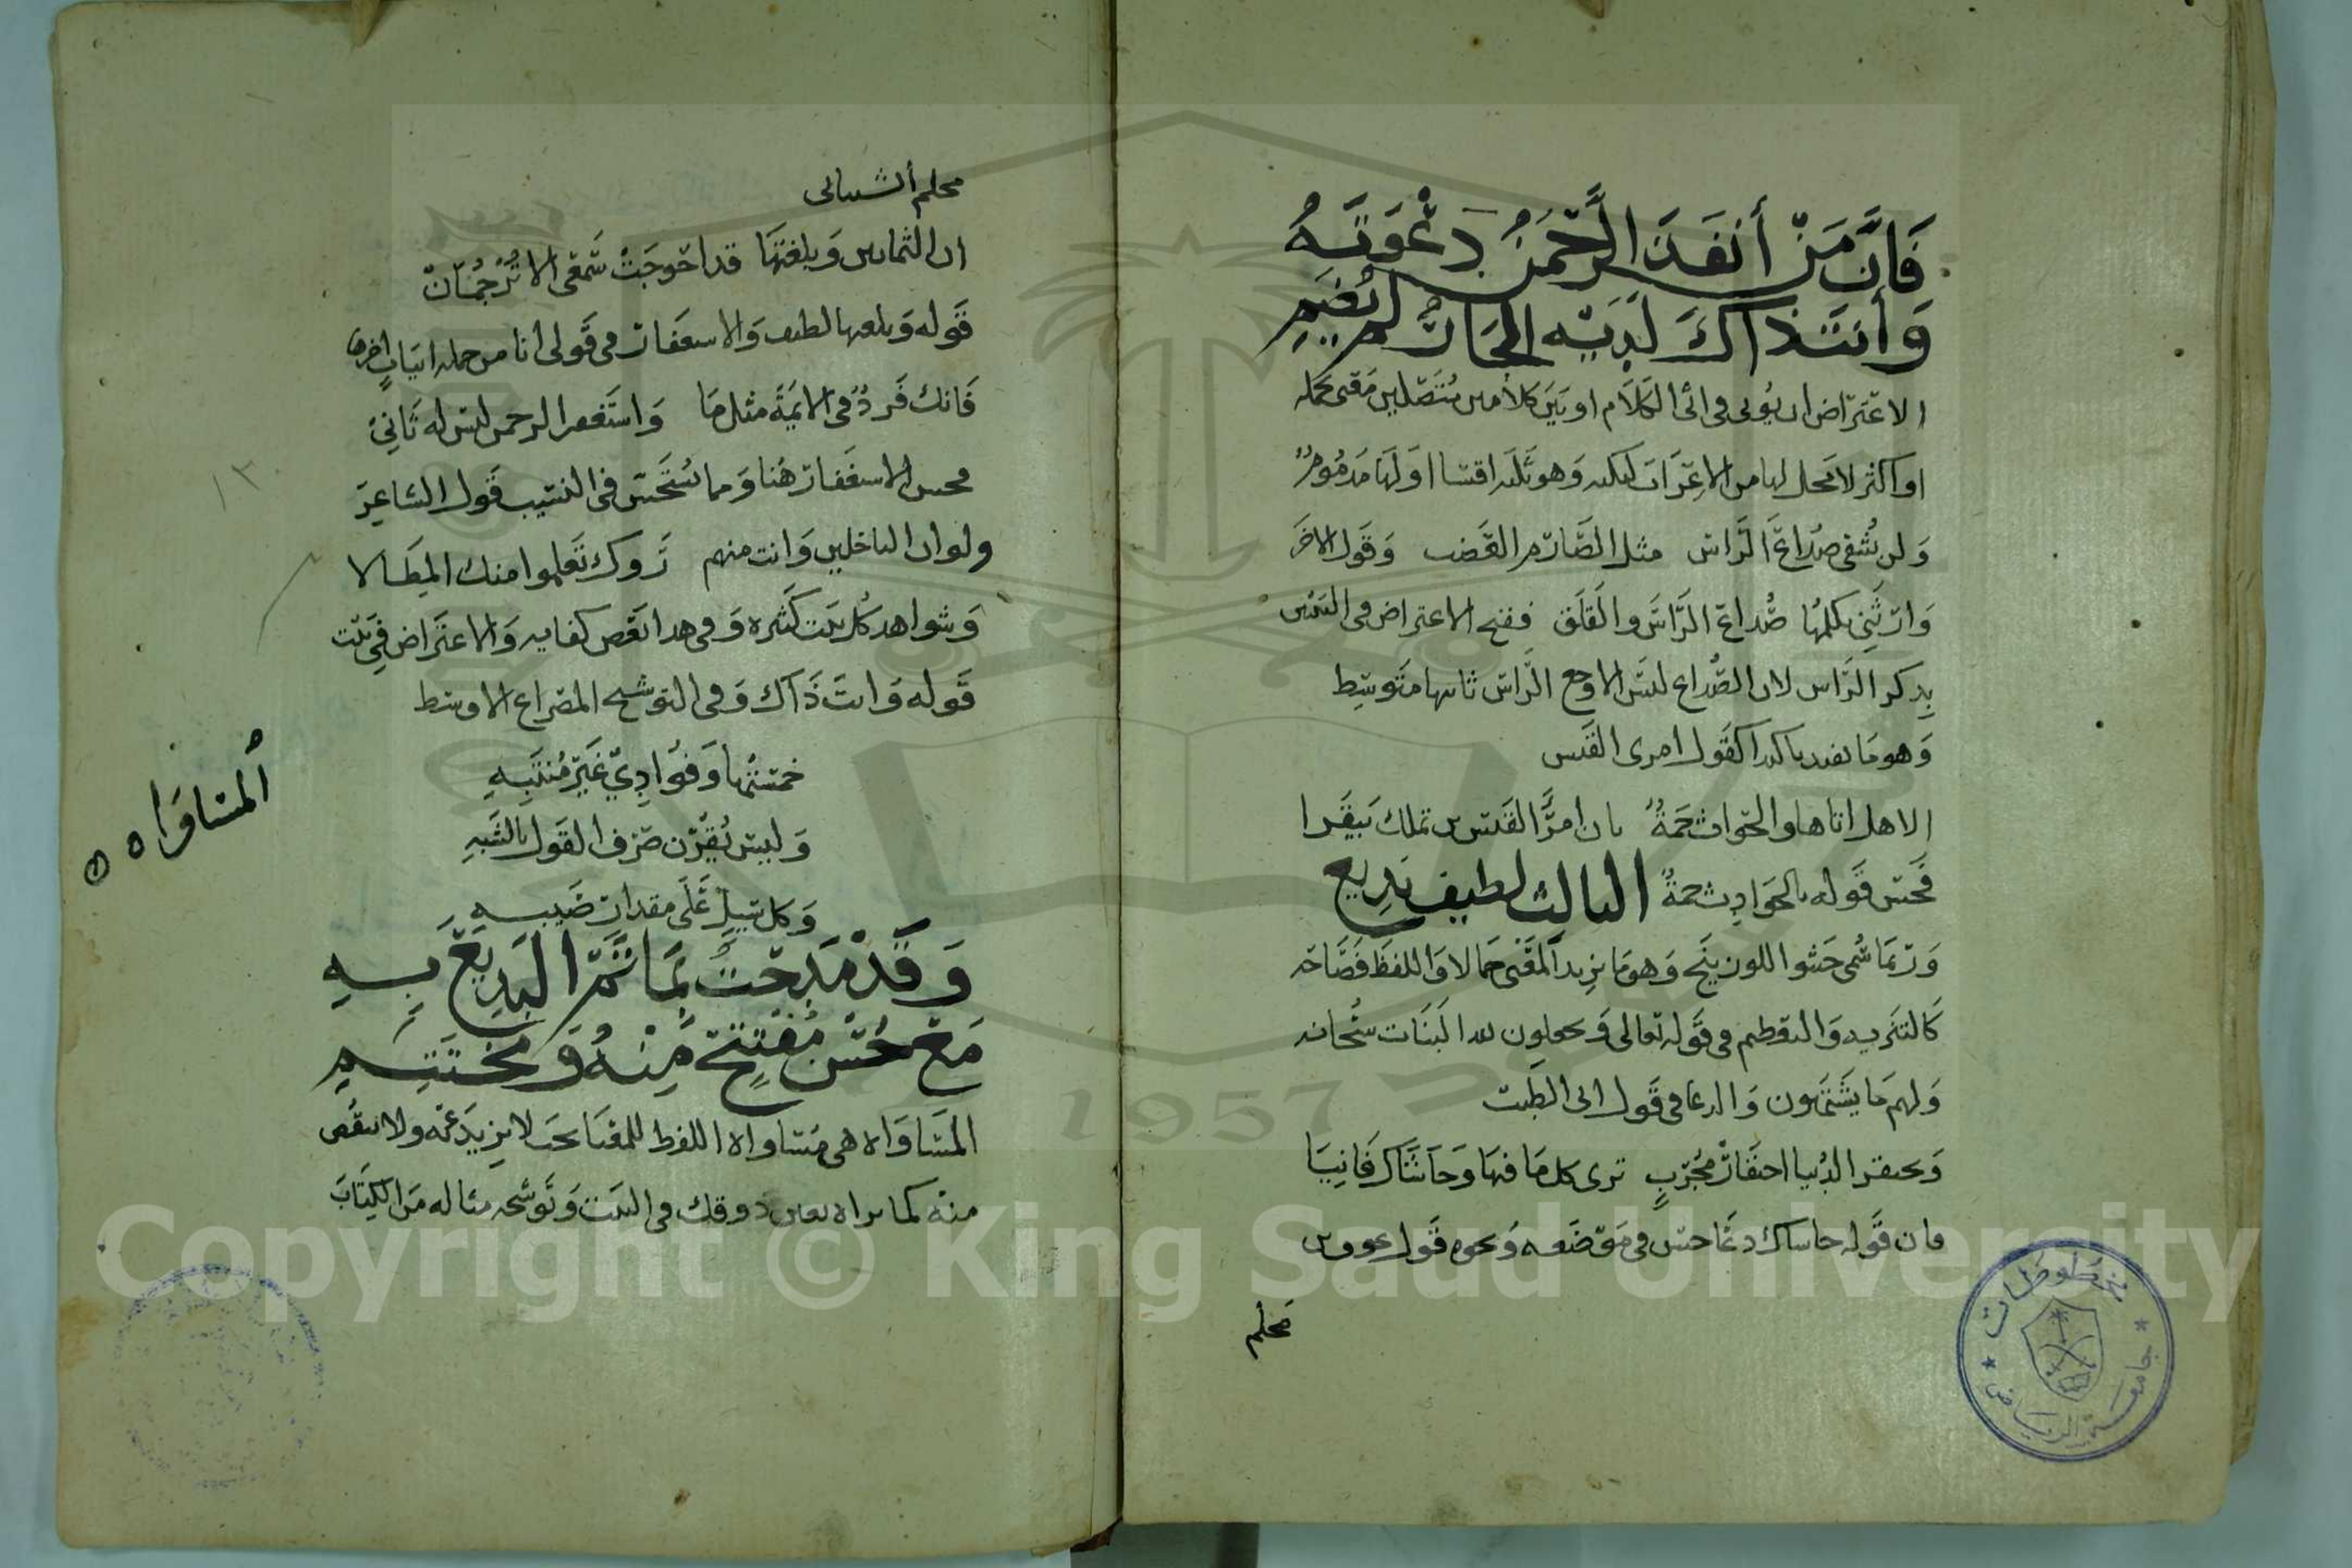 فَإِنَّ مَنْ أَنفَذَ الرَّحْمَنُ دَعْوَتَهُ
وَأَنتَ ذَاكَ لَدَيْهِ الْجَارُ لَمْ يُضَمِ
الاعتراض ان يوتى فى اثنا الكلام او بين كلامين متصلين معنى بجمله
او اكثر لا محل لها من الاعراب لنكته وهو ثلثه اقسام اولها مذموم
ولن نشفى صداع الراس مثل الصارم العضب وقول الاخر
صداع الراس والقلق فقبح الاعتراض فى البيتين
بذكر الراس لان الصداع ليس الا وجع الراس ثانيها متوسط
وهو ما يفيد تاكيدا كقول امرى القيس
الا هل اتاها والحوادث جمة بان امرء القيس بن تملك بيقرا
فحسن قوله الحوادث جمة الثالث لطيف بديع
وربما سمى حشو اللوزينج وهو ما يزيد المعنى جمالا واللفظ فصاحه
كالتنزيه والتعظيم فى قوله تعالى ويجعلون لله البنات سبحانه
ولهم ما يشتهون والدعا فى قول ابى الطيب
وتحتقر الدنيا احتقار مجرب ترى كل ما فيها وحاشاك فانيا
فان قوله حاشاك دعا حسن فى موضعه ونحوه قول عوف بن
محلم
محلم الشيبانى
ان الثمانين وبلغتها قد احوجت سمعى الا ترجمان
قوله وبلغتها لطيف والاستغفار فى قولى انا من جمله ابيات اخرها
فانك فرد فى الايمة مثلما واستغفر الرحمن ليس له ثانى
محسن الاستغفار هنا ومما يستحسن فى النسيب قول الشاعر
ولو ان الباخلين وانت منهم رأوك تعلموا منك المطالا
وشواهد كل بيت كثيره وفى هذا القصد كفايه والاعتراض فى بيت
قوله وانت ذاك وفى التوشيح المصراع الاوسط
وفؤادي غير منتبه
وليس يقرن صرف القول بالشبه
وكل سيل على مقدار صيبه
وَقَدْ مَدَحْتُ بِمَا تَمَّ الْبَدِيعُ بِهِ
مَعْ حُسْنِ مُفْتَتَحٍ مِنْهُ وَمُخْتَتَمِ
المساواه هى مساواه اللفظ للمعنا بحيث لا يزيد عنه ولا ينقص
منه كما تراه بعين ذوقك فى البيت وتوشيحه مثاله من الكتاب
المساواه
١٣٠
مخطوطات
جامعة الرياض
1957
Copyright © King Saud University